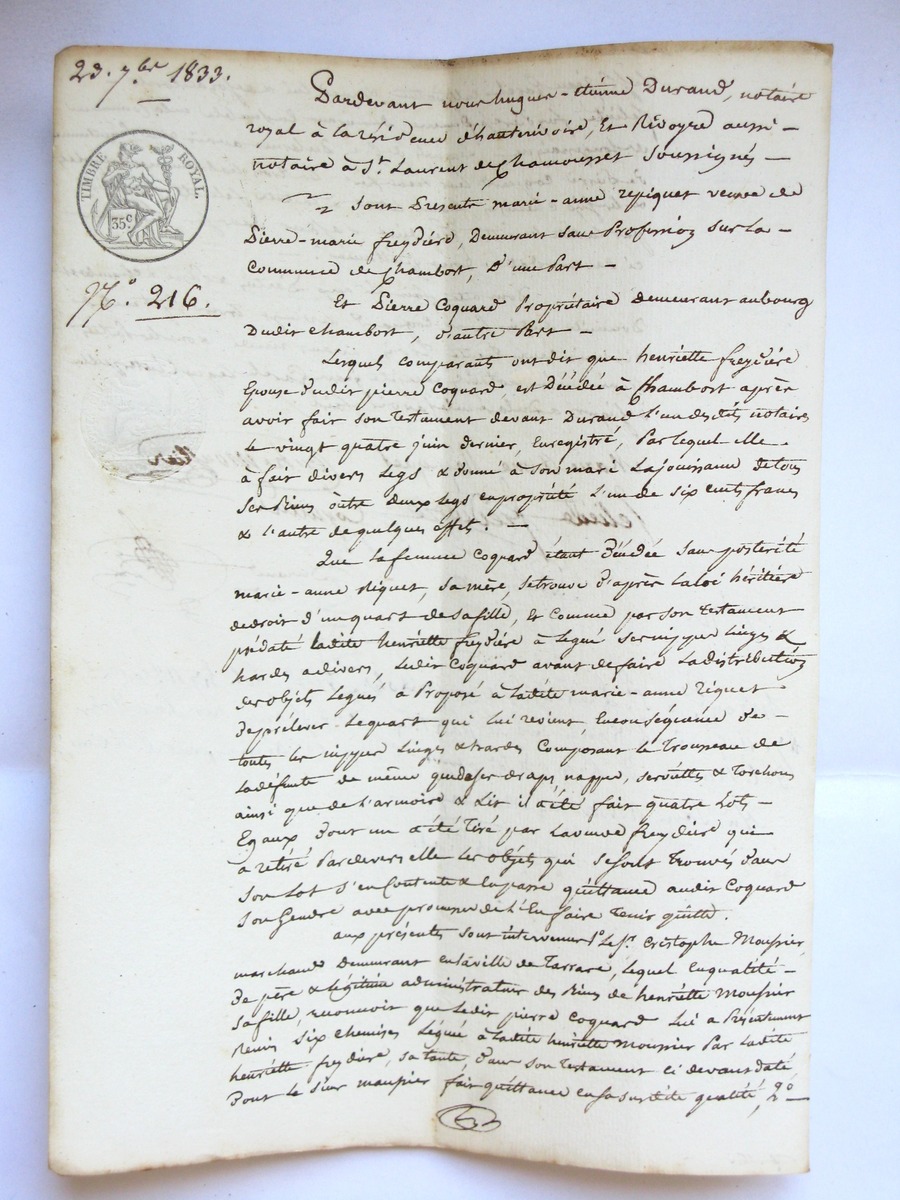 23. 7bre 1833.
TIMBRE ROYAL.
35 c.
N.° 216.
Pardevant nous hugues-étienne Durand, notaire
royal à la résidence d'hauterivoire, Et Rivoyre aussi
notaire à St. Laurent de Chamousset Soussignés —
Sont Présents marie-anne repiquet veuve de
Pierre-marie freydière, Demeurant sans Profession sur la
Commune de Chambost, D'une Part —
Et Pierre Coquard Propriétaire demeurant au bourg
Dudit Chambost, d'autre Part —
Lesquels comparants ont dit que henriette freydière
Epouse dudit pierre Coquard, est Décédée à Chambost après
avoir fait son testament devant Durand l'un desdits notaires
le vingt quatre juin dernier, Enregistré, Par lequel elle
à fait divers Legs & donné à son mari La jouissance de tous
ses Biens outre deux Legs en propriété L'un de six cents francs
& l'autre de quelques effets. —
Que la femme Coquard étant décédée sans postérité
marie-anne riquet, sa mère, se trouve d'après la loi héritière
de droit d'un quart de sa fille, Et comme par son Testament
prédaté ladite henriette freydière à légué ses nippes Linges &
hardes a divers, Ledit Coquard avant de faire La distribution
des objets Légués à Proposé à Ladite marie-anne riquet
de prélever Le quart qui lui revient En conséquence de
toutes les nippes Linges & hardes Composant le Trousseau de
La défunte de même que de ses draps, nappes, serviettes & Torchons
ainsi que de l'armoire & Lit il a été fait quatre Lots
Egaux dont un a été tiré par La veuve freydière qui
a retiré Pardevers elle Les objets qui se sont Trouvés dans
son Lot s'en Contente & en passe quittance audit Coquard
son Gendre avec promesse de l'En faire Tenir quitte.
aux présentes sont intervenus 1.° Le sr. Cristophe Moupier
marchand Demeurant en la ville de Tarrare, lequel En qualité
de père & légitime administrateur des Biens de henriette Moupier
sa fille, reconnoit que Ledit pierre Coquard Lui a Présentement
Remis six Chemises Léguées à Ladite henriette Moupier Par Ladite
henriette freydière, sa tante, dans son Testament ci devant daté
Dont le sieur moupier fait quittance en sa susdite qualité, 2.°